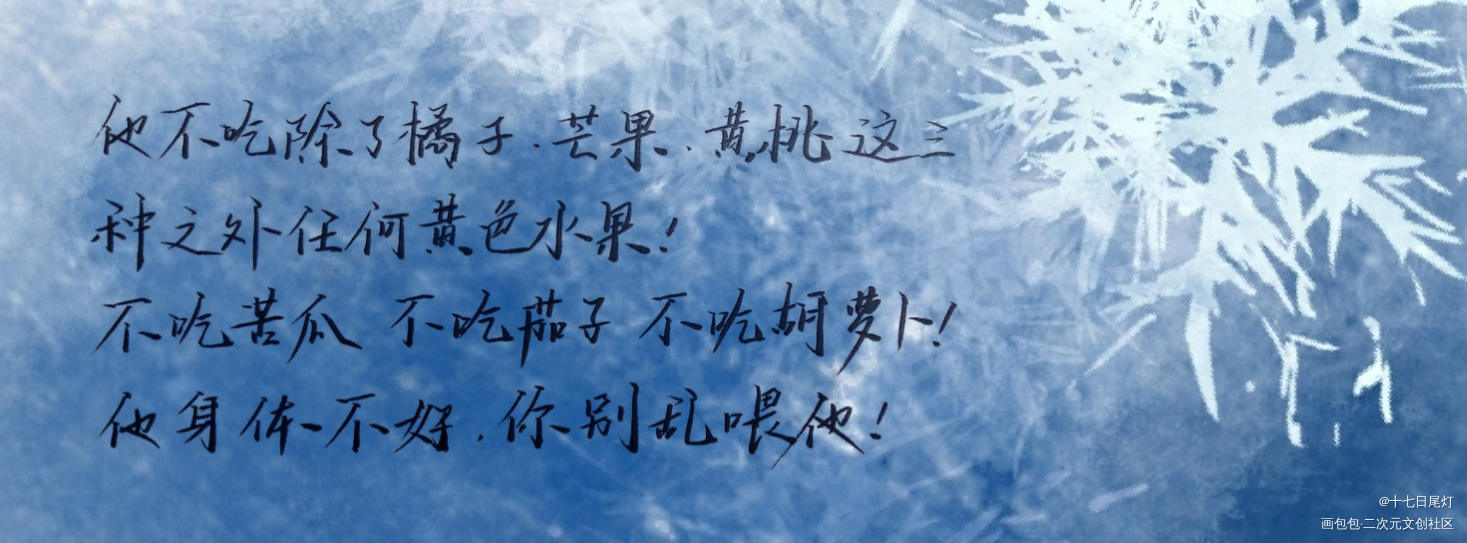 他不吃除了橘子.芒果.黄桃这三
种之外任何黄色水果!
不吃苦瓜 不吃茄子 不吃胡萝卜!
他身体不好.你别乱喂他!
@十七日尾灯
画包包·二次元文创社区